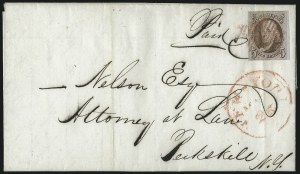 Paid
Nelson Esq
Attorney at Law,
Peekskill
N.Y.